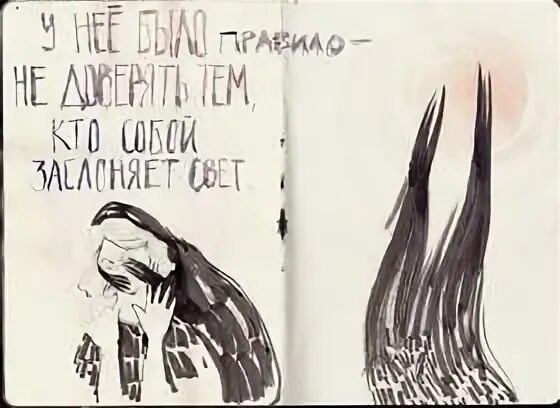 У НЕЁ БЫЛО ПРАВИЛО —
НЕ ДОВЕРЯТЬ ТЕМ,
КТО СОБОЙ
ЗАСЛОНЯЕТ СВЕТ